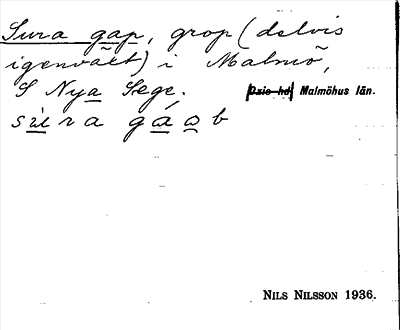 Sura gap, grop (delvis
igenväxt) i Malmö,
S Nya Sege. Oxie hd Malmöhus län.
sùra gáob
NILS NILSSON 1936.